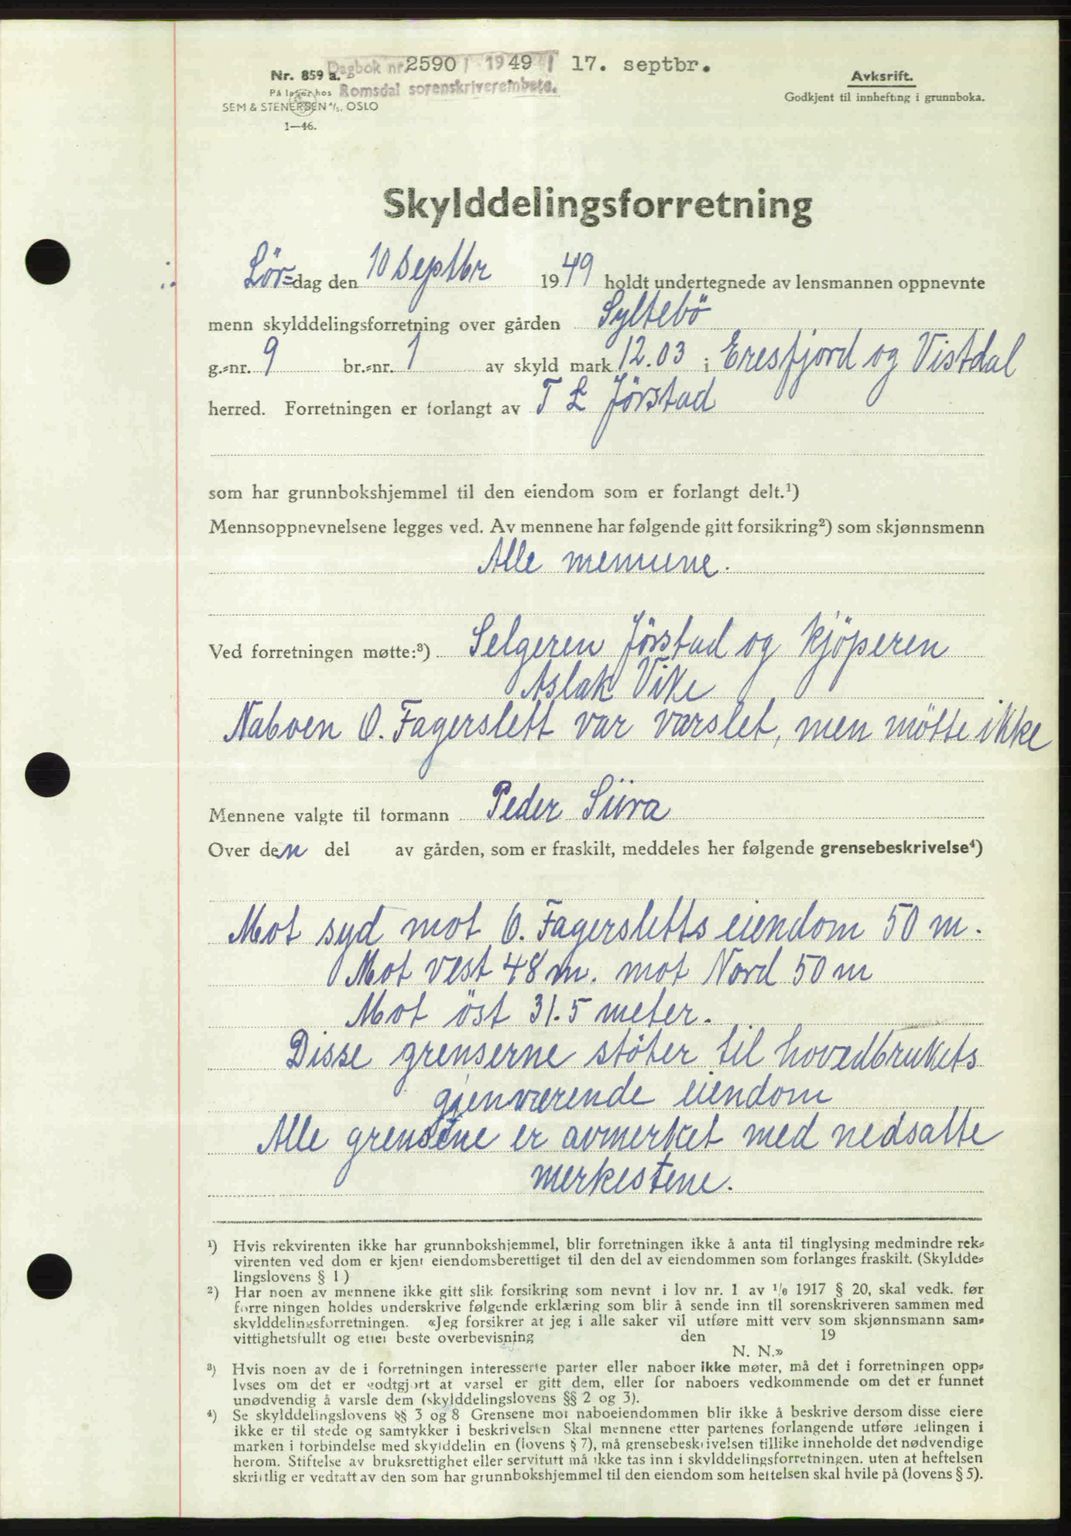 Dagbok nr. 2590 / 1949 / 17. septbr.
Romsdal sorenskriverembete.
Nr. 859 a.
På lager hos
SEM & STENERSEN A/S. OSLO
1—46.
Avskrift.
Godkjent til innhefting i grunnboka.
Skylddelingsforretning
Lør=dag den 10 Septbr 1949 holdt undertegnede av lensmannen oppnevnte
menn skylddelingsforretning over gården Syltebö
g.=nr. 9 br.=nr. 1 av skyld mark 12.03 i Eresfjord og Vistdal
herred. Forretningen er forlangt av T L Jörstad
som har grunnbokshjemmel til den eiendom som er forlangt delt.¹)
Mennsoppnevnelsene legges ved. Av mennene har følgende gitt forsikring²) som skjønnsmenn
Alle mennene.
Ved forretningen møtte:³) Selgeren Jörstad og kjöperen
Aslak Vike
Naboen O. Fagerslett var varslet, men mötte ikke
Mennene valgte til formann Peder Siira
Over den del av gården, som er fraskilt, meddeles her følgende grensebeskrivelse⁴)
Mot syd mot O. Fagersletts eiendom 50 m.
Mot vest 48 m. mot Nord 50 m
Mot öst 31.5 meter.
Disse grenserne stöter til hovedbrukets
gjenværende eiendom
Alle grensene er avmerket med nedsatte
merkestene.
¹) Hvis rekvirenten ikke har grunnbokshjemmel, blir forretningen ikke å anta til tinglysing medmindre rek=
virenten ved dom er kjent eiendomsberettiget til den del av eiendommen som forlanges fraskilt. (Skyldde=
lingslovens § 1)
²) Har noen av mennene ikke gitt slik forsikring som nevnt i lov nr. 1 av 1/6 1917 § 20, skal vedk. før
forretningen holdes underskrive følgende erklæring som blir å sende inn til sorenskriveren sammen med
skylddelingsforretningen. «Jeg forsikrer at jeg i alle saker vil utføre mitt verv som skjønnsmann sam=
vittighetsfullt og etter beste overbevisning den 19
N. N.»
³) Hvis noen av de i forretningen interesserte parter eller naboer ikke møter, må det i forretningen opp=
lyses om det er godtgjort at varsel er gitt dem, eller for naboers vedkommende om det er funnet
unødvendig å varsle dem (skylddelingslovens §§ 2 og 3).
⁴) Se skylddelingslovens §§ 3 og 8 Grensene mot naboeiendommen blir ikke å beskrive dersom disse eiere
ikke er til stede og samtykker i beskrivelsen Skal mennene etter partenes forlangende utføre delingen i
marken i forbindelse med skylddelingen (lovens § 7), må grensebeskrivelsen tillike inneholde det nødvendige
herom. Stiftelse av bruksrettighet eller servitutt må ikke tas inn i skylddelingsforretningen. uten at heftelsen
skriftlig er vedtatt av den som har grunnbokshjemmel til den eiendom som heftelsen skal hvile på (lovens § 5).